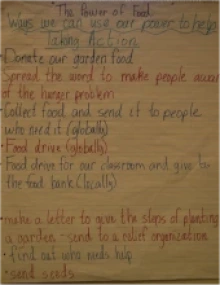 "The Power of Food"
Ways we can use our power to help
Taking Action
• Donate our garden food
Spread the word to make people aware
of the hunger problem
• Collect food and send it to people
who need it (globally)
• Food drive (globally)
• Food drive for our classroom and give to
the food bank (locally)
• make a letter to give the steps of planting
a garden - send to a relief organization
• find out who needs help
• send seeds